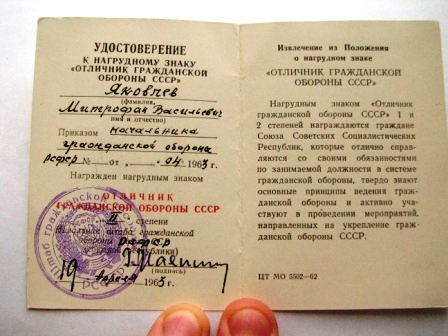 УДОСТОВЕРЕНИЕ
К НАГРУДНОМУ ЗНАКУ
«ОТЛИЧНИК ГРАЖДАНСКОЙ
ОБОРОНЫ СССР»
(фамилия,
Митрофан Васильевич
имя и отчество)
Приказом начальника
гражданской обороны
РСФСР № от 04 1963 г.
Награжден нагрудным знаком
ОТЛИЧНИК
ГРАЖДАНСКОЙ ОБОРОНЫ СССР
II степени
Начальник штаба гражданской
обороны РСФСР
республики)
(подпись)
19 апреля 1963 г.
Штаб гражданской
РСФСР
Извлечение из Положения
о нагрудном знаке
«ОТЛИЧНИК ГРАЖДАНСКОЙ
ОБОРОНЫ СССР»
Нагрудным знаком «Отличник
гражданской обороны СССР» 1 и
2 степени награждаются граждане
Союза Советских Социалистических
Республик, которые отлично справ-
ляются со своими обязанностями
по занимаемой должности в системе
гражданской обороны, твердо знают
основные принципы ведения граж-
данской обороны и активно уча-
ствуют в проведении мероприятий,
направленных на укрепление граж-
данской обороны СССР.
ЦТ МО 5502—62